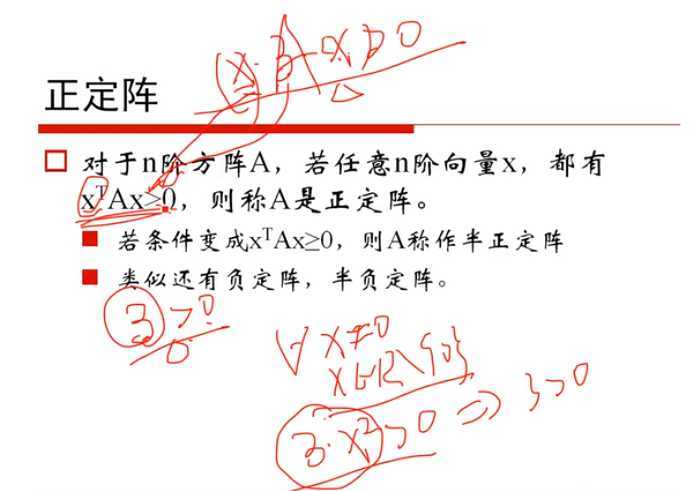 正定阵
对于n阶方阵A，若任意n阶向量x，都有
xᵀAx>0，则称A是正定阵。
若条件变成xᵀAx≥0，则A称作半正定阵
类似还有负定阵，半负定阵。
3>0
∀ x≠0
x∈R\{0}
3·x²>0 ⇒ 3>0